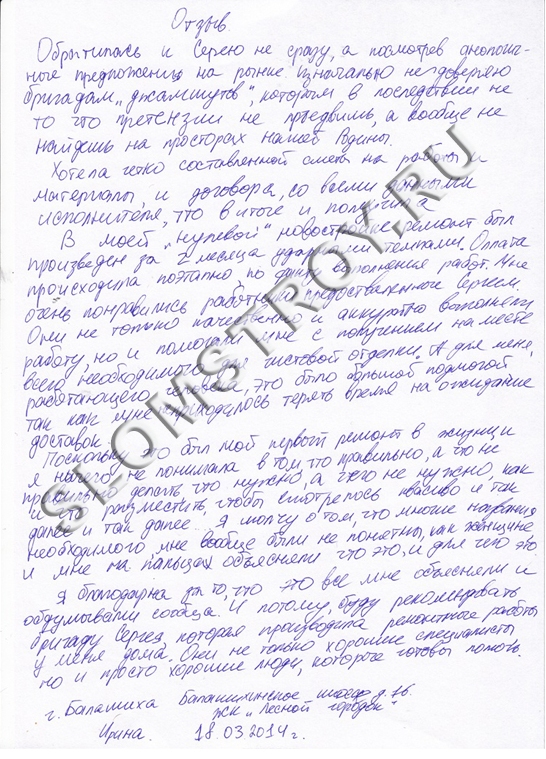 Отзыв.
Обратилась к Сергею не сразу, а посмотрев аналогич-
ные предложения на рынке. Изначально не доверяю
бригадам „джамшутов", которым в последствии не
то что претензии не предъявишь, а вообще не
найдешь на просторах нашей Родины.
Хотела четко составленной сметы на работы и
материалы, и договора, со всеми данными
исполнителя, что в итоге и получила.
В моей „нулевой" новостройке ремонт был
произведен за 2 месяца ударными темпами. Оплата
происходила поэтапно по факту выполнения работ. Мне
очень понравились работники предоставленные Сергеем.
Они не только качественно и аккуратно выполняли
работу, но и помогали мне с получением на месте
всего необходимого для чистовой отделки. А для меня,
работающего человека, это было большой подмогой
так как мне приходилось терять время на ожидание
доставок.
Поскольку это был мой первый ремонт в жизни и
я ничего не понимала в том, что правильно, а что не
правильно делать, что нужно, а чего не нужно, как
и разместить, чтобы смотрелось красиво и так
далее и так далее... Я молчу о том, что многие названия
необходимого, мне вообще были не понятны, как женщине
и мне на пальцах объясняли что это, и для чего это
Я благодарна за то, что это все мне объясняли и
обдумывали сообща. И потому, буду рекомендовать
бригаду Сергея, которая производила ремонтные работы
у меня дома. Они не только хорошие специалисты
но и просто хорошие люди, которые готовы помочь.
г. Балашиха Балашихинское шоссе д.
ЖК „Лесной городок"
Ирина. 18.03.2014г.
SLOMSTROY.RU